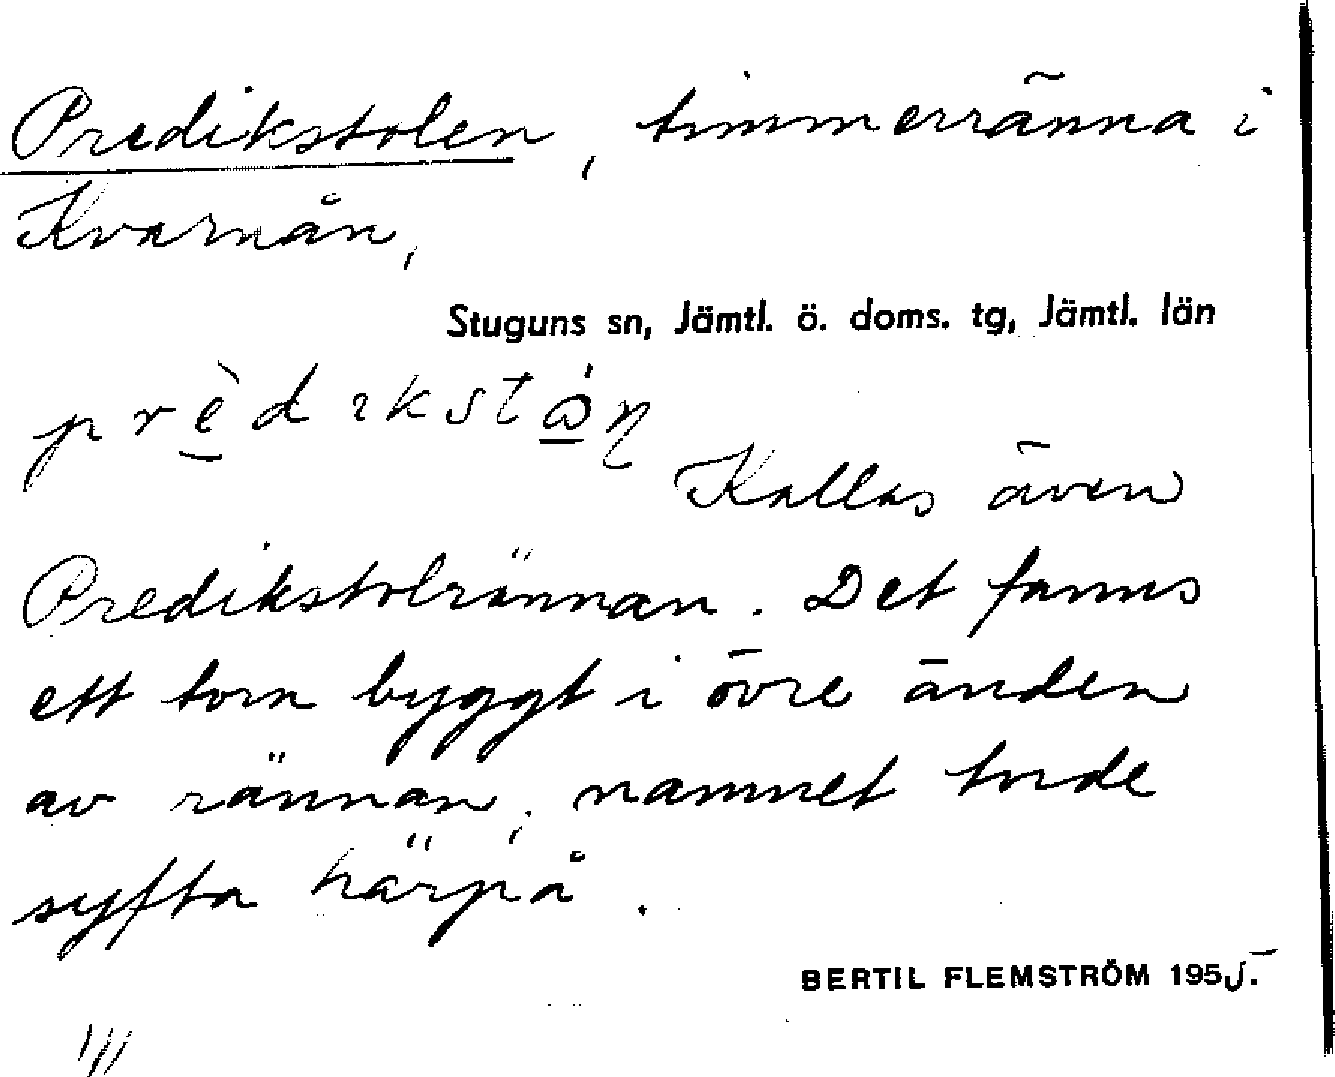 Predikstolen, timmerränna i
Kvarnån,
Stuguns sn, Jämtl. ö. doms. tg, Jämtl. län
Kallas även
Predikstolrännan. Det fanns
ett torn byggt i övre änden
av rännan; namnet torde
syfta härpå.
BERTIL FLEMSTRÖM 1955.